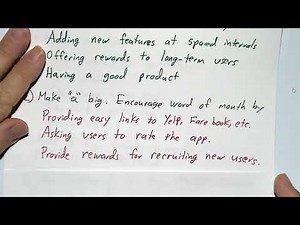 Adding new features at spaced intervals
Offering rewards to long-term users
Having a good product
) Make "a" big. Encourage word of mouth by,
Providing easy links to Yelp, Facebook, etc.
Asking users to rate the app.
Provide rewards for recruiting new users.